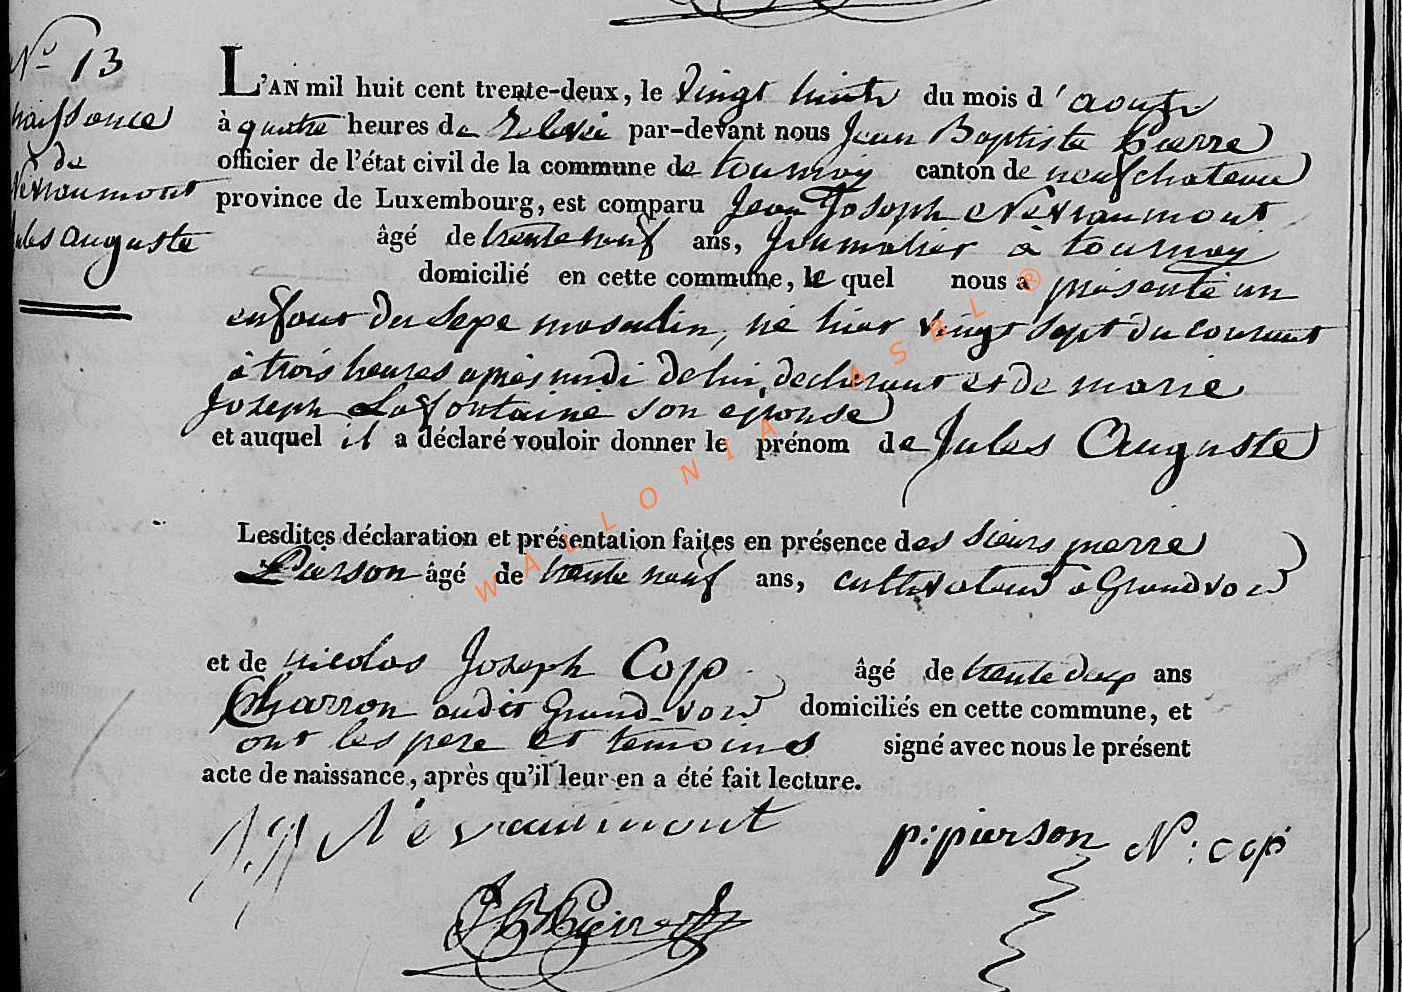 N° 13
naissance
de
Nevraumont
Jules Auguste
L'AN mil huit cent trente-deux, le vingt huit du mois d'aout
à quatre heures de Relevée par-devant nous Jean Baptiste Pierre
officier de l'état civil de la commune de tournay canton de neufchateau
province de Luxembourg, est comparu Jean Joseph Nevraumont
âgé de trente neuf ans, journalier à tournay
domicilié en cette commune, le quel nous a présenté un
enfant du sexe masculin, né hier vingt sept du courant
à trois heures après midi de lui, declarant et de marie
Joseph Lafontaine son epouse
et auquel il a déclaré vouloir donner le prénom de Jules Auguste
Lesdites déclaration et présentation faites en présence des sieurs pierre
Pierson âgé de trente neuf ans, cultivateur a Grandvoir
et de nicolas Joseph Cop âgé de trente deux ans
Charron audit Grand-voir domiciliés en cette commune, et
ont les pere et temoins signé avec nous le présent
acte de naissance, après qu'il leur en a été fait lecture.
J.J Nevraumont p:pierson N:cop
JB Pierre
WALLONIA ASBL ®